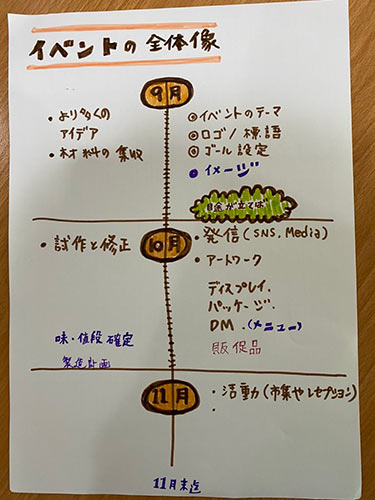 イベントの全体像
9月
・より多くの
アイデア
・材料の集収
◎イベントのテーマ
◎ロゴ/標語
◎ゴール設定
・イメージ
10月
・試作と修正
・発信(SNS.Media)
・アートワーク
ディスプレイ.
パッケージ.
DM.(メニュー)
販促品
味・値段確定
製造計画
11月
・活動(市集やレセプション)
・
11月末迄